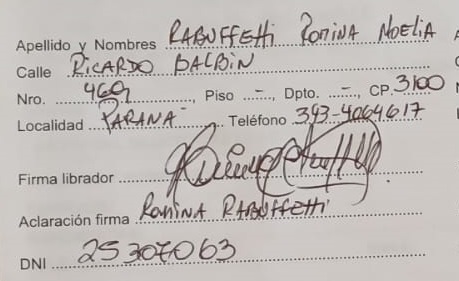 Apellido y Nombres RABUFFEttI ROMINA NOELIA
Calle RICARDO BALBIN
Nro. 469, Piso -, Dpto. -, CP. 3100
Localidad PARANA Teléfono 343-4064617
Firma librador
Aclaración firma ROMINA RABUFFEttI
DNI 25307063